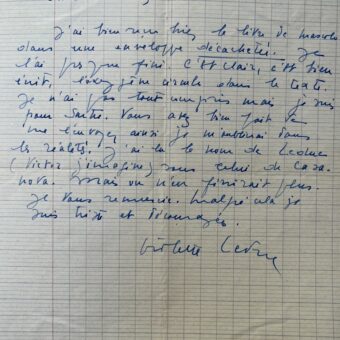 J'ai bien reçu hier le livre de Mascolo
dans une enveloppe décachetée. Je
l'ai presque fini. C'est clair, c'est bien
écrit, l'oxygène circule dans le texte.
Je n'ai pas tout compris mais je suis
pour Sartre. Vous avez bien fait de
me l'envoyer ainsi je m'introuai dans
les réalités. J'ai lu le nom de Leduc
(Victor j'imagine) sous celui de Casa-
nova. Mais on n'en finirait plus.
Je vous remercie. Malgré cela je
suis triste et découragée.
Violette Leduc